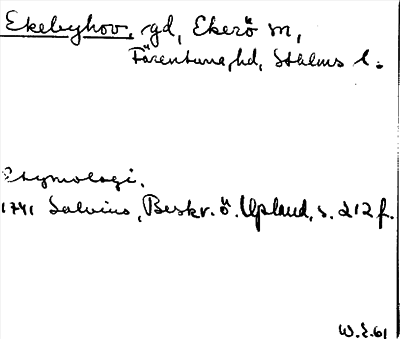 Ekebyhov, gd, Ekerö sn,
Färentuna hd, Sthlms l.
Etymologi.
1741 Salvius, Beskr. ö. Upland, s. 212 f.
W.E.61